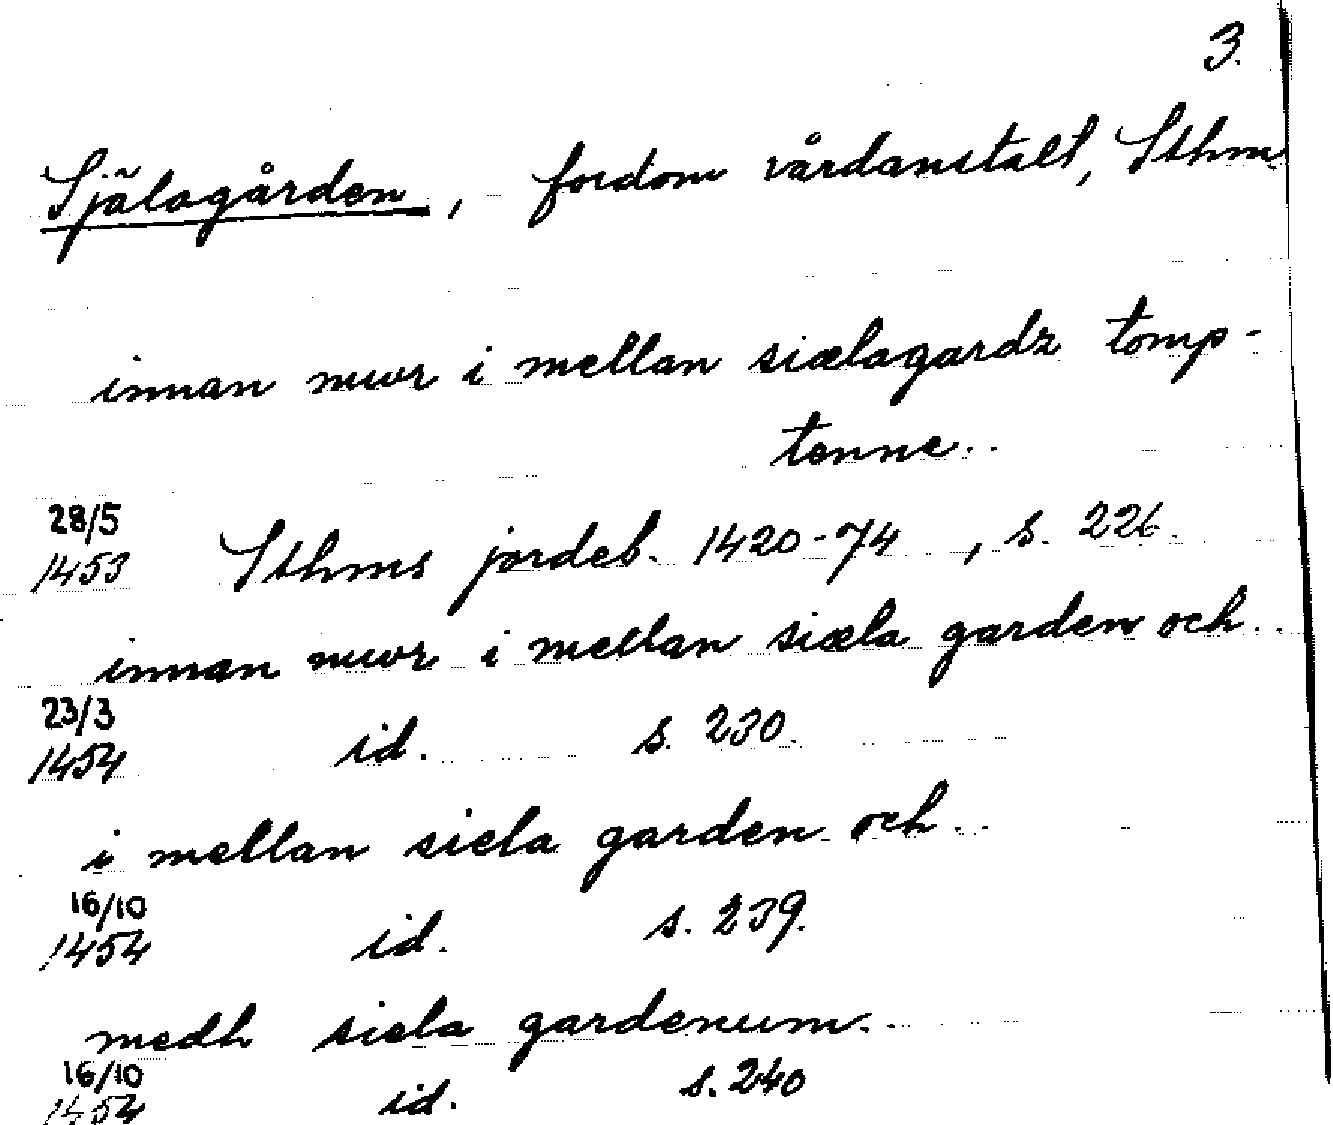 3.
Själagården, fordom vårdanstalt, Sthm
innan mwr i mellan siælagardz tomp-
tenne..
28/5
1453 Sthms jordeb. 1420-74, s. 226.
innan mwr i mellan siæla garden och..
23/3
1454 id. s. 230.
i mellan siela garden och..
16/10
1454 id. s. 239.
medh siela gardenum..
16/10
1454 id. s. 240